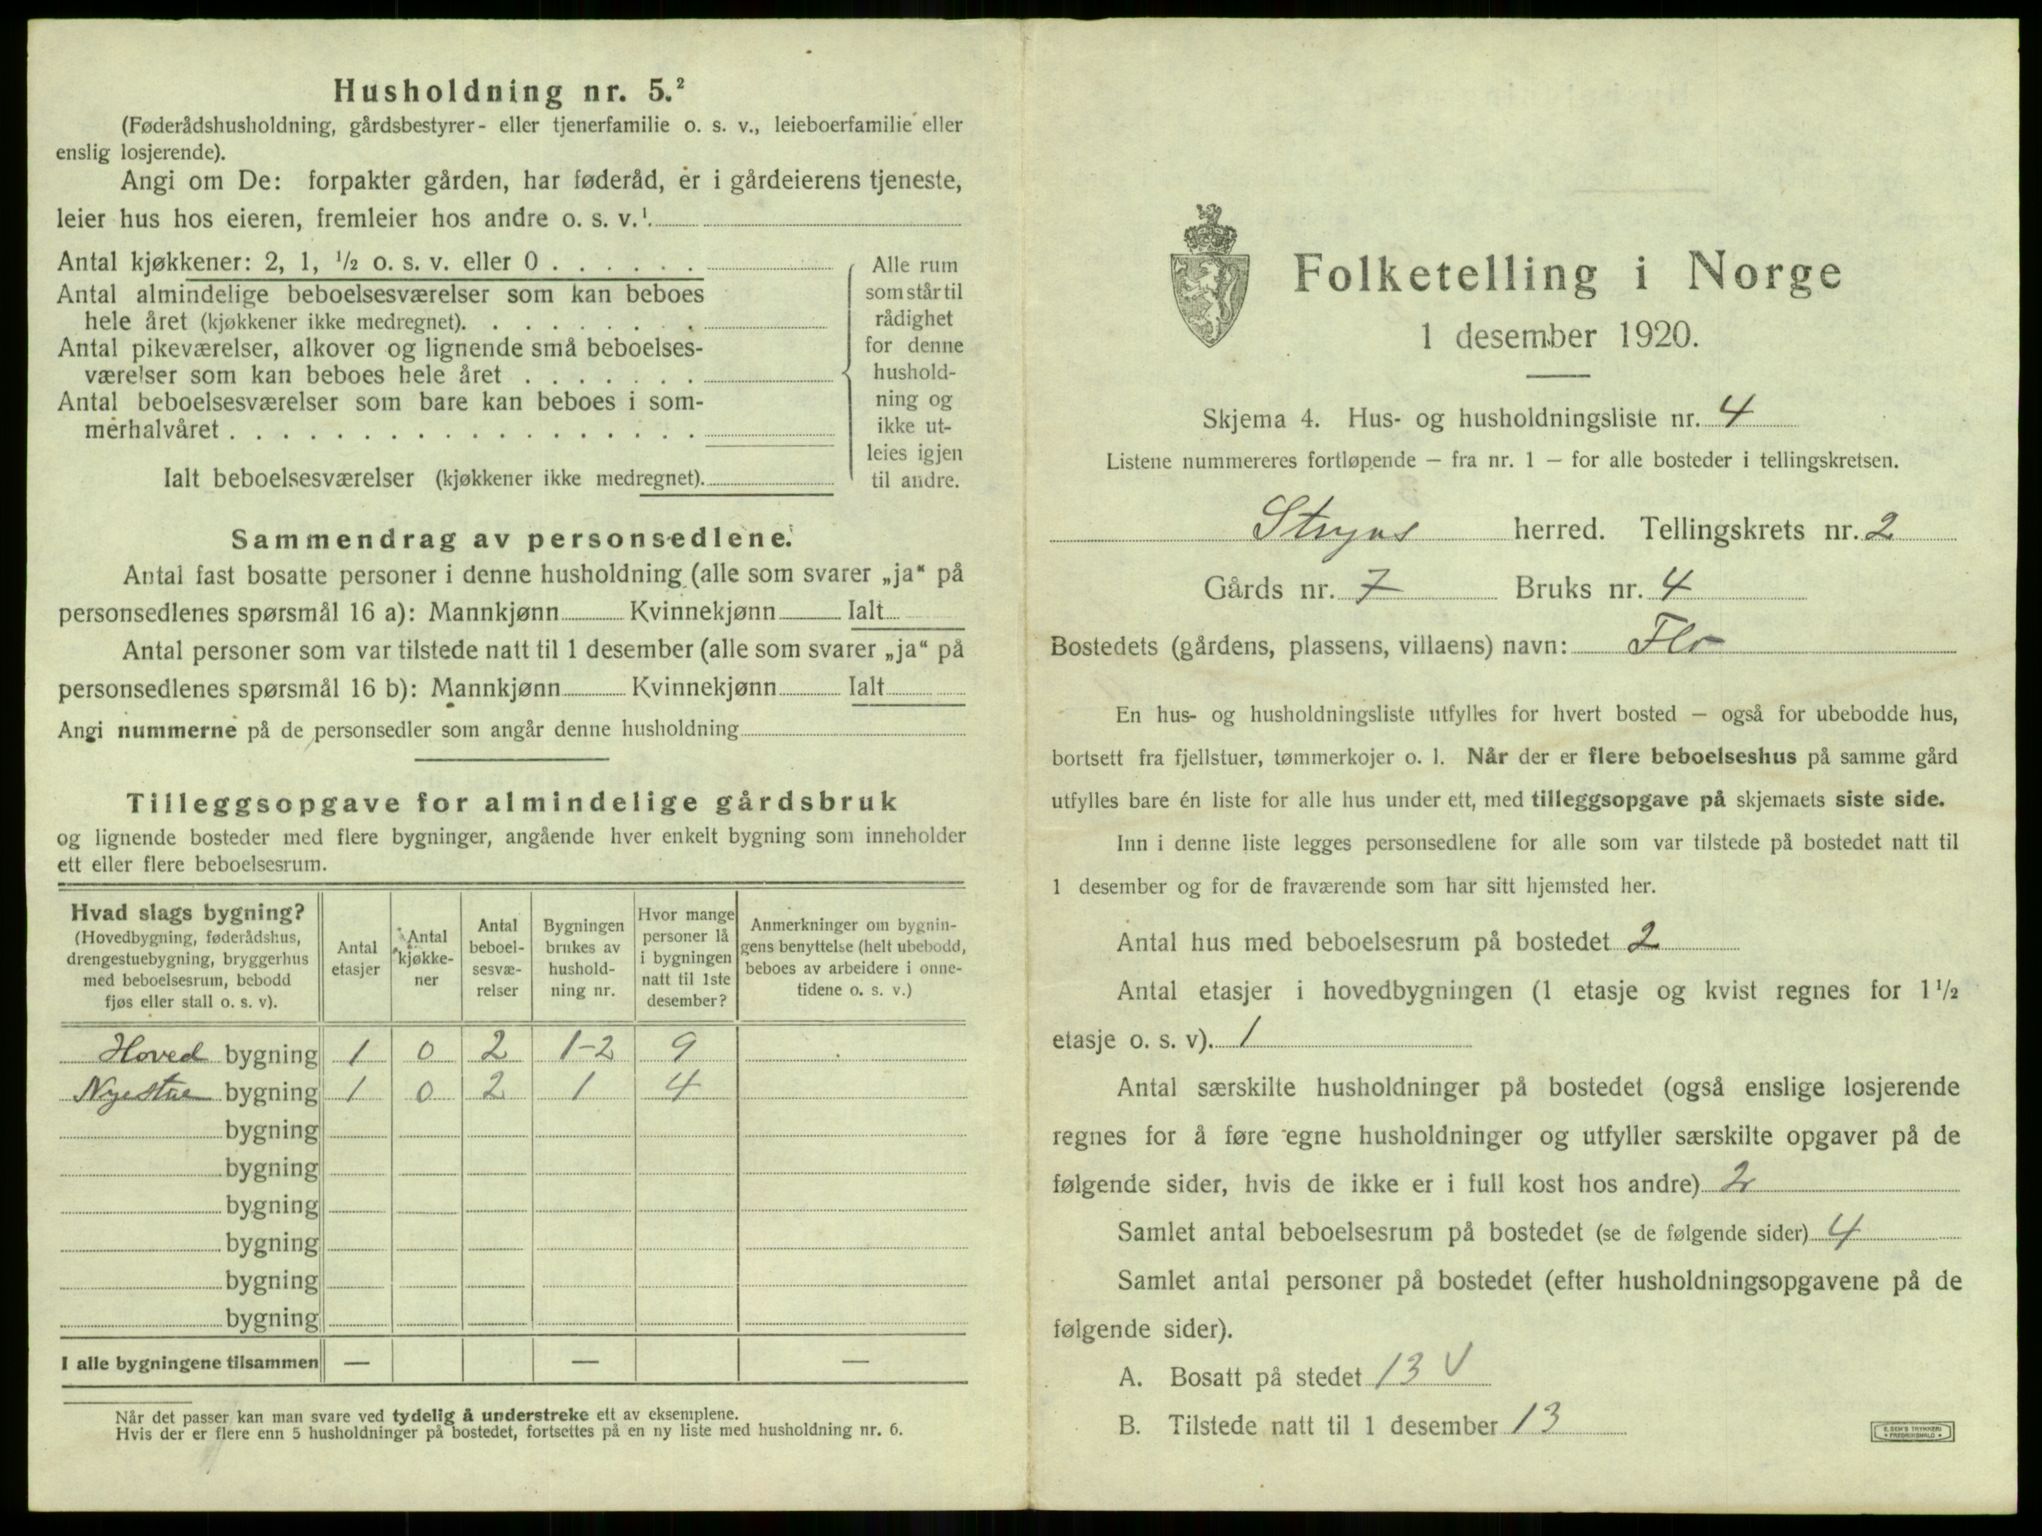 Husholdning nr. 5.²
(Føderådshusholdning, gårdsbestyrer- eller tjenerfamilie o. s. v., leieboerfamilie eller
enslig losjerende).
Angi om De: forpakter gården, har føderåd, er i gårdeierens tjeneste,
leier hus hos eieren, fremleier hos andre o. s. v.¹
Antal kjøkkener: 2, 1, ½ o. s. v. eller 0
Antal almindelige beboelsesværelser som kan beboes
hele året (kjøkkener ikke medregnet).
Antal pikeværelser, alkover og lignende små beboelses-
værelser som kan beboes hele året
Antal beboelsesværelser som bare kan beboes i som-
merhalvåret
Ialt beboelsesværelser (kjøkkener ikke medregnet).
Alle rum
som står til
rådighet
for denne
hushold-
ning og
ikke ut-
leies igjen
til andre.
Sammendrag av personsedlene.
Antal fast bosatte personer i denne husholdning (alle som svarer „ja“ på
personsedlenes spørsmål 16 a): Mannkjønn Kvinnekjønn Ialt
Antal personer som var tilstede natt til 1 desember (alle som svarer „ja“ på
personsedlenes spørsmål 16 b): Mannkjønn Kvinnekjønn Ialt
Angi nummerne på de personsedler som angår denne husholdning
Tilleggsopgave for almindelige gårdsbruk
og lignende bosteder med flere bygninger, angående hver enkelt bygning som inneholder
ett eller flere beboelsesrum.
Hvad slags bygning?
(Hovedbygning, føderådshus,
drengestuebygning, bryggerhus
med beboelsesrum, bebodd
fjøs eller stall o. s. v).
Antal
etasjer
Antal
kjøkke-
ner
Antal
beboel-
sesvæ-
relser
Bygningen
brukes av
hushold-
ning nr.
Hvor mange
personer lå
i bygningen
natt til 1ste
desember?
Anmerkninger om bygnin-
gens benyttelse (helt ubebodd,
beboes av arbeidere i onne-
tidene o. s. v.)
Hoved bygning 1 0 2 1-2 9
Nyestue bygning 1 0 2 1 4
bygning
bygning
bygning
bygning
bygning
bygning
I alle bygningene tilsammen — — —
Når det passer kan man svare ved tydelig å understreke ett av eksemplene.
Hvis der er flere enn 5 husholdninger på bostedet, fortsettes på en ny liste med husholdning nr. 6.
Folketelling i Norge
1 desember 1920.
Skjema 4. Hus- og husholdningsliste nr. 4
Listene nummereres fortløpende – fra nr. 1 – for alle bosteder i tellingskretsen.
Stryns herred. Tellingskrets nr. 2
Gårds nr. 7 Bruks nr. 4
Bostedets (gårdens, plassens, villaens) navn: Flo
En hus- og husholdningsliste utfylles for hvert bosted – også for ubebodde hus,
bortsett fra fjellstuer, tømmerkojer o. l. Når der er flere beboelseshus på samme gård
utfylles bare én liste for alle hus under ett, med tilleggsopgave på skjemaets siste side.
Inn i denne liste legges personsedlene for alle som var tilstede på bostedet natt til
1 desember og for de fraværende som har sitt hjemsted her.
Antal hus med beboelsesrum på bostedet 2
Antal etasjer i hovedbygningen (1 etasje og kvist regnes for 1½
etasje o. s. v). 1
Antal særskilte husholdninger på bostedet (også enslige losjerende
regnes for å føre egne husholdninger og utfyller særskilte opgaver på de
følgende sider, hvis de ikke er i full kost hos andre) 2
Samlet antal beboelsesrum på bostedet (se de følgende sider) 4
Samlet antal personer på bostedet (efter husholdningsopgavene på de
følgende sider).
A. Bosatt på stedet 13 V
B. Tilstede natt til 1 desember 13
E. SEM'S TRYKKERI
FREDRIKSHALD